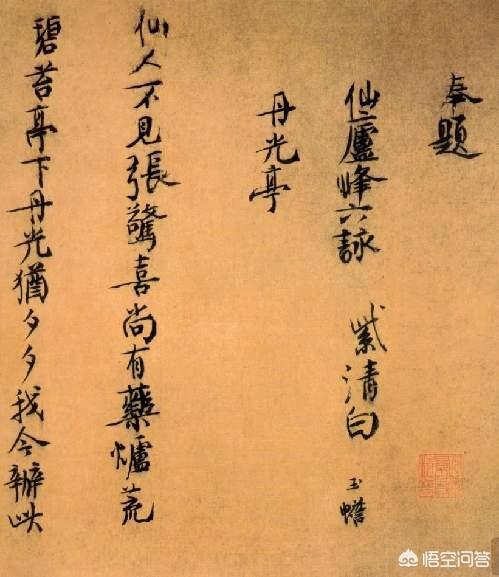 奉題
仙廬峰六詠 紫清白玉蟾
丹光亭
仙人不見張驚喜尚有藥爐荒
碧苔亭下丹光猶夕夕我今辦此
悟空问答